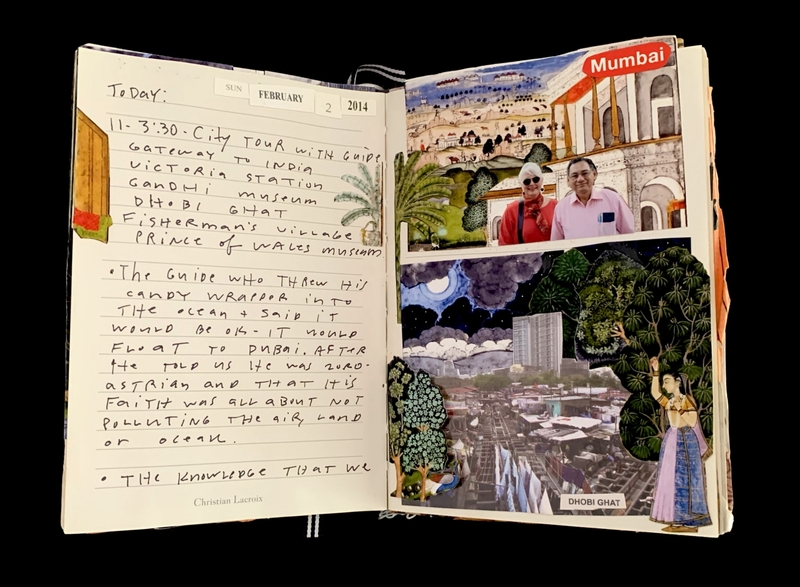 ToDAy:
SUN FEBRUARY 2 2014
11- 3:30 - City TOUR WITH GUIDE
GATEWAY TO INDIA
VICTORIA STATION
GANDHI MUSEUM
DHOBI GHAT
FISHERMAN'S VILLAGE
PRINCE OF WALES MUSEUM
• THE GUIDE WHO THREW HIS
CANDY WRAPPER INTO
THE OCEAN + SAID IT
WOULD BE OK - IT WOULD
FLOAT TO DUBAI. AFTER
HE TOLD US HE WAS ZORO-
ASTRIAN AND THAT HIS
FAITH WAS ALL ABOUT NOT
POLLUTING THE AIR, LAND
OR OCEAN.
• THE KNOWLEDGE THAT WE
Christian Lacroix
Mumbai
DHOBI GHAT